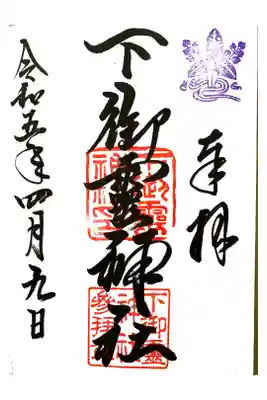 奉拝
下御霊神社
下御霊
神社
参拝
令和五年四月九日